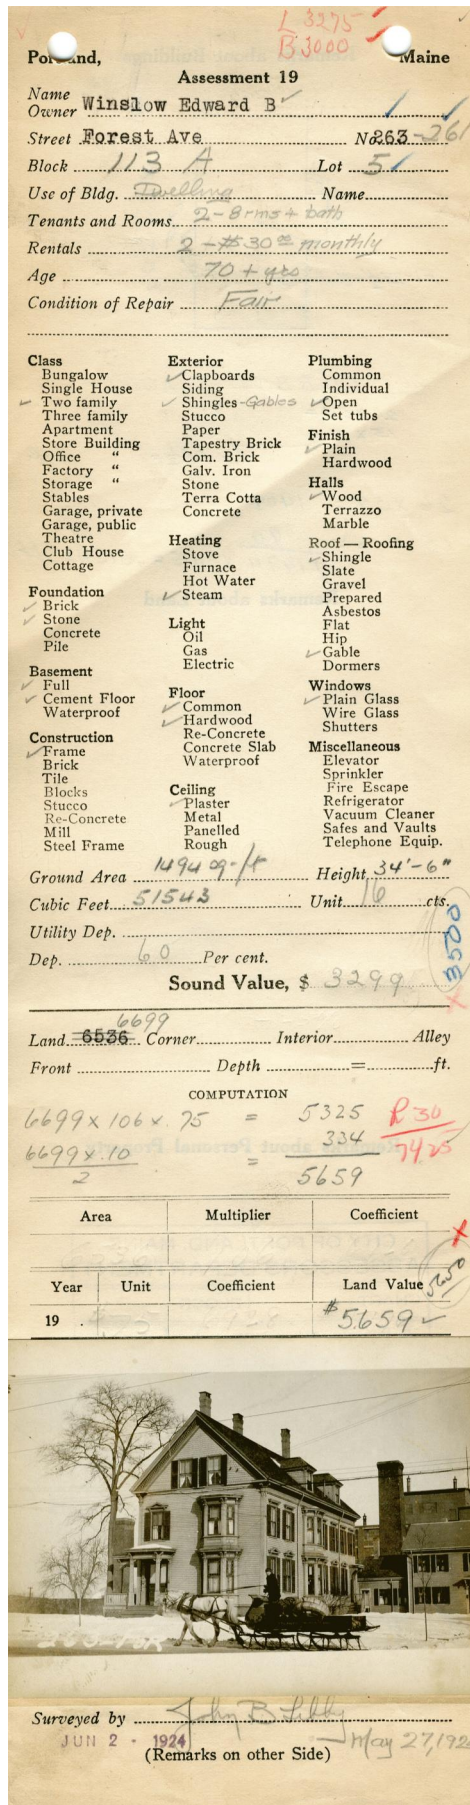 L 3275
B 3000
Portland, Maine
Assessment 19
Name
Owner Winslow Edward B
Street Forest Ave No. 263-261
Block 113 A Lot 5
Use of Bldg. Dwelling Name
Tenants and Rooms 2-8 rms + bath
Rentals 2 - $30 00 monthly
Age 70 + yrs
Condition of Repair Fair
Class
Bungalow
Single House
✓ Two family
Three family
Apartment
Store Building
Office "
Factory "
Storage "
Stables
Garage, private
Garage, public
Theatre
Club House
Cottage
Foundation
✓ Brick
✓ Stone
Concrete
Pile
Basement
✓ Full
✓ Cement Floor
Waterproof
Construction
✓ Frame
Brick
Tile
Blocks
Stucco
Re-Concrete
Mill
Steel Frame
Exterior
✓ Clapboards
Siding
✓ Shingles - Gables
Stucco
Paper
Tapestry Brick
Com. Brick
Galv. Iron
Stone
Terra Cotta
Concrete
Heating
Stove
Furnace
Hot Water
✓ Steam
Light
Oil
Gas
Electric
Floor
✓ Common
✓ Hardwood
Re-Concrete
Concrete Slab
Waterproof
Ceiling
✓ Plaster
Metal
Panelled
Rough
Plumbing
Common
Individual
✓ Open
Set tubs
Finish
✓ Plain
Hardwood
Halls
✓ Wood
Terrazzo
Marble
Roof — Roofing
✓ Shingle
Slate
Gravel
Prepared
Asbestos
Flat
Hip
✓ Gable
Dormers
Windows
✓ Plain Glass
Wire Glass
Shutters
Miscellaneous
Elevator
Sprinkler
Fire Escape
Refrigerator
Vacuum Cleaner
Safes and Vaults
Telephone Equip.
Ground Area 1494 sq-ft Height, 34'-6"
Cubic Feet 51543 Unit 16 cts.
Utility Dep.
Dep. 60 Per cent.
3500
Sound Value, $ 3299
6699
Land 6536 Corner Interior Alley
Front Depth = ft.
COMPUTATION
6699 x 106 x .75 = 5325
6699 x .10 = 334
2 5659
R 30
7425
Area Multiplier Coefficient
5650
Year Unit Coefficient Land Value
19 $5659 ✓
Surveyed by John B Libby
JUN 2 - 1924 May 27, 192
(Remarks on other Side)